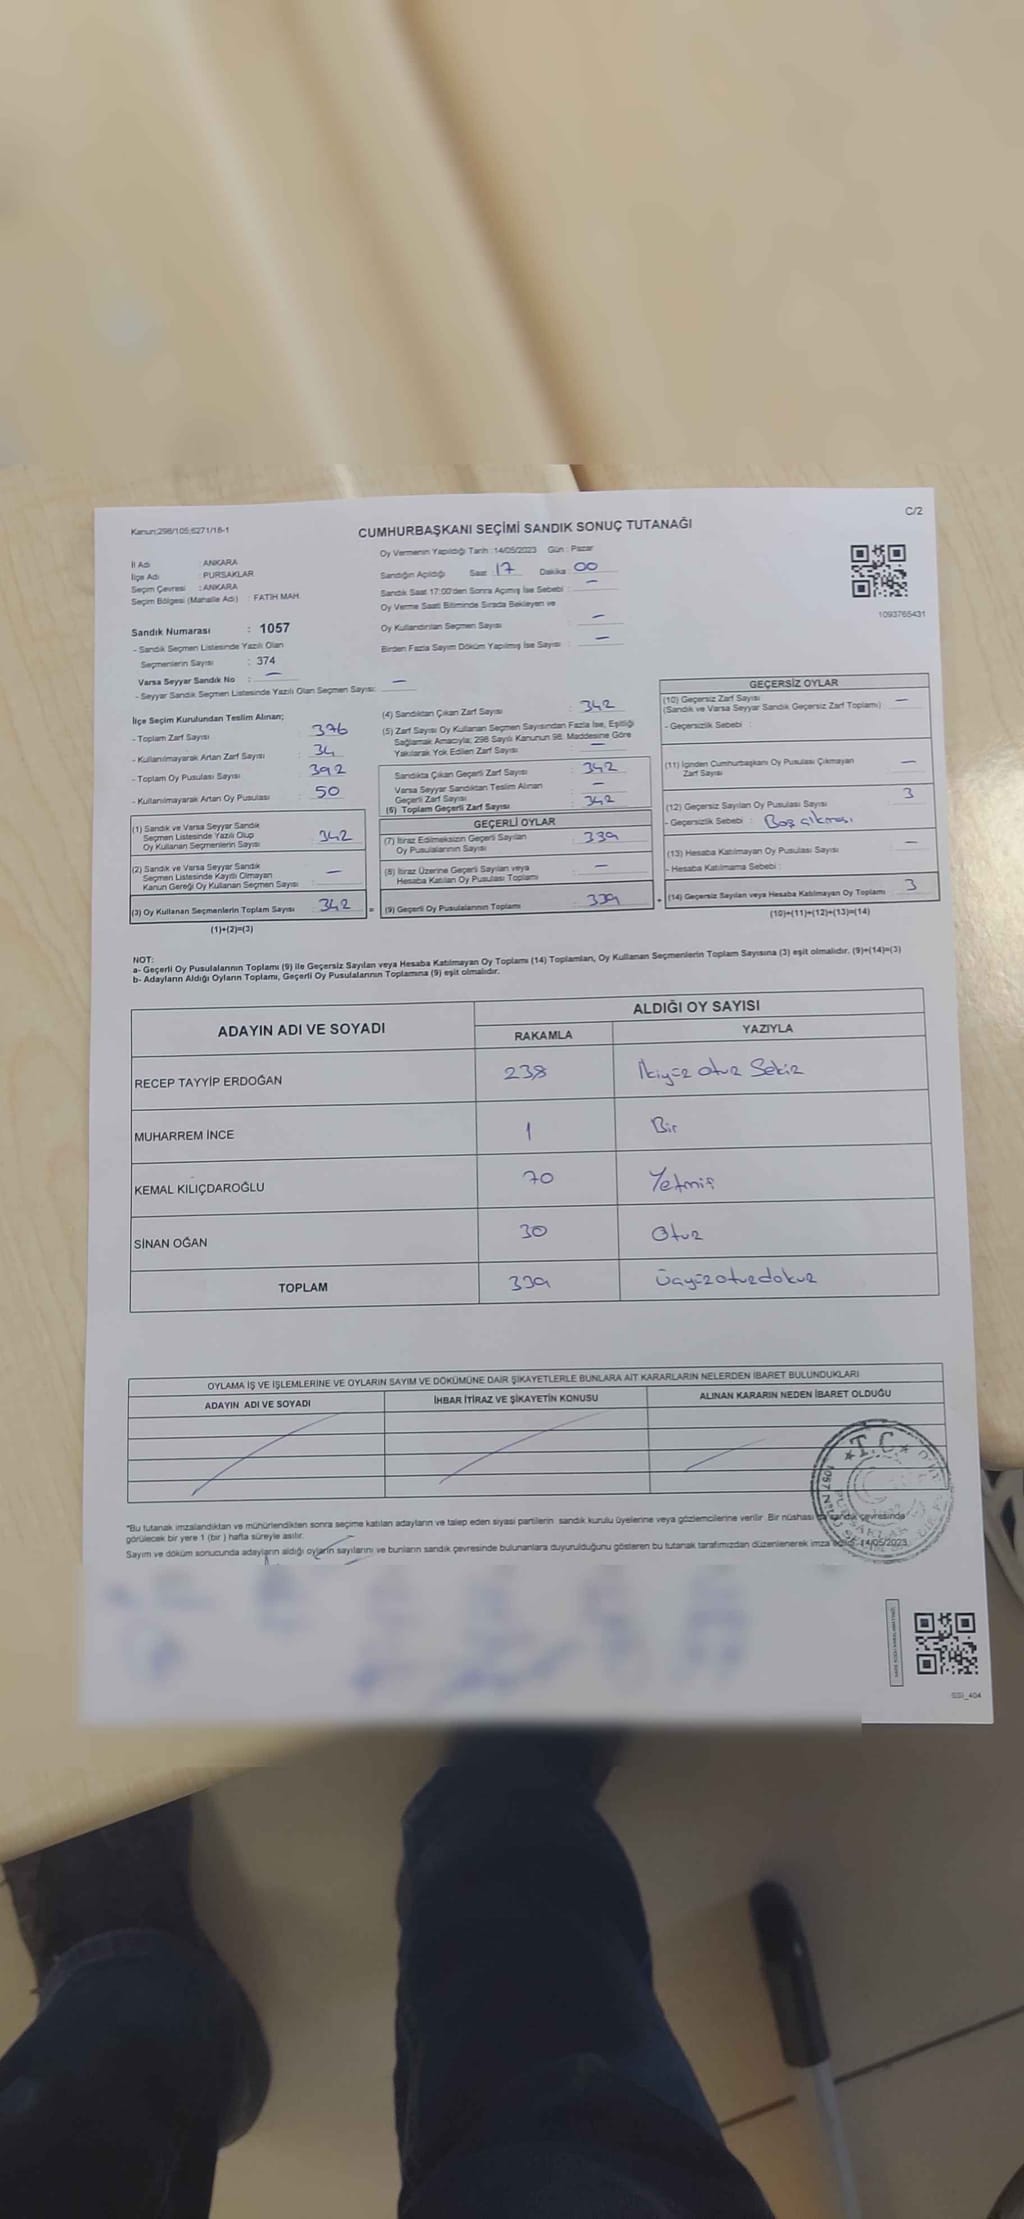 Kanun:298/105,6271/18-1
C/2
CUMHURBAŞKANI SEÇİMİ SANDIK SONUÇ TUTANAĞI
İl Adı : ANKARA
İlçe Adı : PURSAKLAR
Seçim Çevresi : ANKARA
Seçim Bölgesi (Mahalle Adı) : FATİH MAH.
Sandık Numarası : 1057
- Sandık Seçmen Listesinde Yazılı Olan
Seçmenlerin Sayısı : 374
Varsa Seyyar Sandık No : —
- Seyyar Sandık Seçmen Listesinde Yazılı Olan Seçmen Sayısı: —
Oy Vermenin Yapıldığı Tarih : 14/05/2023 Gün : Pazar
Sandığın Açıldığı Saat 17 Dakika 00
Sandık Saat 17:00'den Sonra Açımış İse Sebebi : —
Oy Verme Saati Bitiminde Sırada Bekleyen ve
Oy Kullandırılan Seçmen Sayısı : —
Birden Fazla Sayım Döküm Yapılmış İse Sayısı : —
1093765431
İlçe Seçim Kurulundan Teslim Alınan;
- Toplam Zarf Sayısı : 376
- Kullanılmayarak Artan Zarf Sayısı : 34
- Toplam Oy Pusulası Sayısı : 392
- Kullanılmayarak Artan Oy Pusulası : 50
(1) Sandık ve Varsa Seyyar Sandık
Seçmen Listesinde Yazılı Olup
Oy Kullanan Seçmenlerin Sayısı : 342
(2) Sandık ve Varsa Seyyar Sandık
Seçmen Listesinde Kayıtlı Olmayan
Kanun Gereği Oy Kullanan Seçmen Sayısı : —
(3) Oy Kullanan Seçmenlerin Toplam Sayısı : 342 =
(1)+(2)=(3)
(4) Sandıktan Çıkan Zarf Sayısı : 342
(5) Zarf Sayısı Oy Kullanan Seçmen Sayısından Fazla İse, Eşitliği
Sağlamak Amacıyla; 298 Sayılı Kanunun 98. Maddesine Göre
Yakılarak Yok Edilen Zarf Sayısı : —
Sandıkta Çıkan Geçerli Zarf Sayısı : 342
Varsa Seyyar Sandıktan Teslim Alınan
Geçerli Zarf Sayısı : —
(6) Toplam Geçerli Zarf Sayısı : 342
GEÇERLİ OYLAR
(7) İtiraz Edilmeksizin Geçerli Sayılan
Oy Pusulalarının Sayısı : 339
(8) İtiraz Üzerine Geçerli Sayılan veya
Hesaba Katılan Oy Pusulası Toplamı : —
(9) Geçerli Oy Pusulalarının Toplamı : 339 +
GEÇERSİZ OYLAR
(10) Geçersiz Zarf Sayısı —
(Sandık ve Varsa Seyyar Sandık Geçersiz Zarf Toplamı)
- Geçersizlik Sebebi :
(11) İçinden Cumhurbaşkanı Oy Pusulası Çıkmayan
Zarf Sayısı —
(12) Geçersiz Sayılan Oy Pusulası Sayısı 3
- Geçersizlik Sebebi : Boş çıkması
(13) Hesaba Katılmayan Oy Pusulası Sayısı —
- Hesaba Katılmama Sebebi :
(14) Geçersiz Sayılan veya Hesaba Katılmayan Oy Toplamı 3
(10)+(11)+(12)+(13)=(14)
NOT:
a- Geçerli Oy Pusulalarının Toplamı (9) ile Geçersiz Sayılan veya Hesaba Katılmayan Oy Toplamı (14) Toplamları, Oy Kullanan Seçmenlerin Toplam Sayısına (3) eşit olmalıdır. (9)+(14)=(3)
b- Adayların Aldığı Oyların Toplamı, Geçerli Oy Pusulalarının Toplamına (9) eşit olmalıdır.
ADAYIN ADI VE SOYADI ALDIĞI OY SAYISI
RAKAMLA YAZIYLA
RECEP TAYYİP ERDOĞAN 238 İkiyüz Otuz Sekiz
MUHARREM İNCE 1 Bir
KEMAL KILIÇDAROĞLU 70 Yetmiş
SİNAN OĞAN 30 Otuz
TOPLAM 339 Üçyüzotuzdokuz
OYLAMA İŞ VE İŞLEMLERİNE VE OYLARIN SAYIM VE DÖKÜMÜNE DAİR ŞİKAYETLERLE BUNLARA AİT KARARLARIN NELERDEN İBARET BULUNDUKLARI
ADAYIN ADI VE SOYADI İHBAR İTİRAZ VE ŞİKAYETİN KONUSU ALINAN KARARIN NEDEN İBARET OLDUĞU
T.C
"Bu tutanak imzalandıktan ve mühürlendikten sonra seçime katılan adayların ve talep eden siyasi partilerin sandık kurulu üyelerine veya gözlemcilerine verilir. Bir nüshası da sandık çevresinde
görülecek bir yere 1 (bir ) hafta süreyle asılır.
Sayım ve döküm sonucunda adayların aldığı oyların sayılarını ve bunların sandık çevresinde bulunanlara duyurulduğunu gösteren bu tutanak tarafımızdan düzenlenerek imza edildi. 14/05/2023
SSI_404